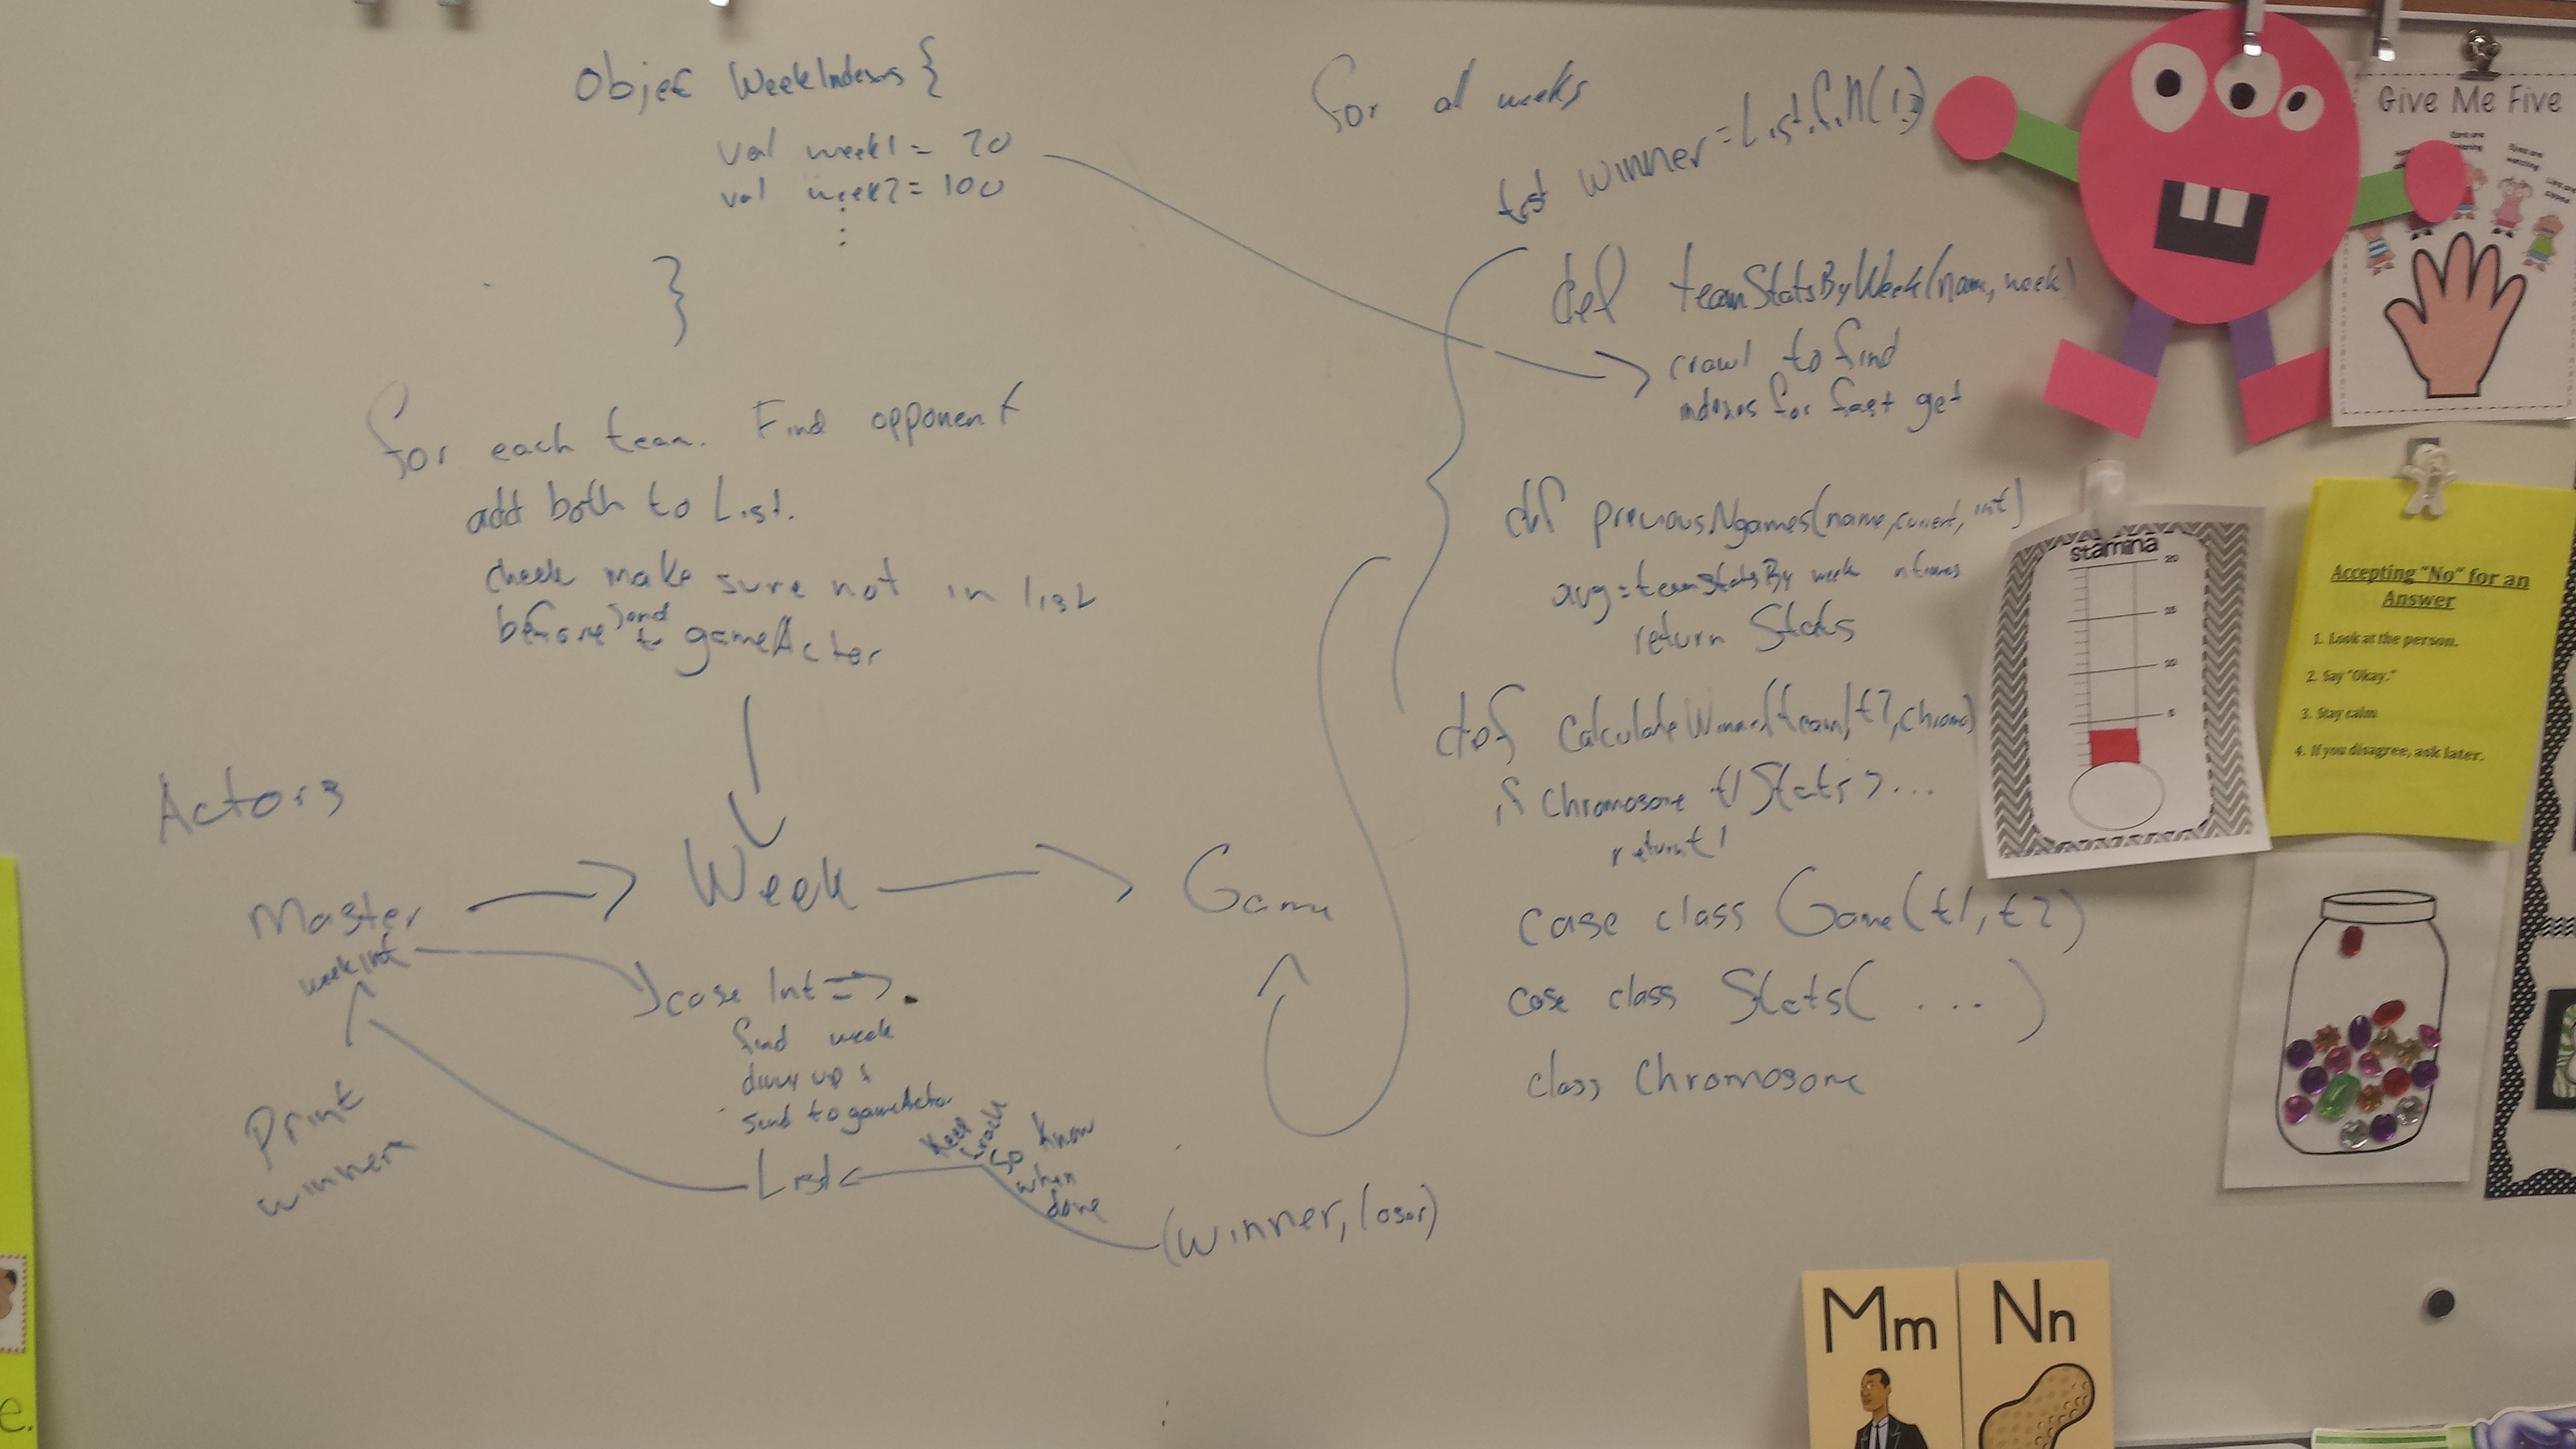 Object WeekIndexes {
val week1 = 20
val week2 = 100
:
}
for each team. Find opponent
add both to List.
check make sure not in list
before send to gameActor
Actors
Master
week Int
Week
Game
case Int =>
find week
divy up &
send to gameActor
List
Keep track so know when done
(winner, loser)
Print
winner
for all weeks
winner = List.fill(
def teamStatsByWeek(name, week)
crawl to find
indexes for fast get
def previousNgames(name, current, int)
avg = teamStatsBy week n times
return Stats
def CalculateWinner(team1, t2, chromo)
if Chromosone t1Stats > ...
return t1
case class Game(t1, t2)
case class Stats( ... )
class Chromosone
Give Me Five
stamina
20
15
10
5
Accepting "No" for an
Answer
1. Look at the person.
2. Say "Okay."
3. Stay calm
4. If you disagree, ask later.
Mm
Nn
e.